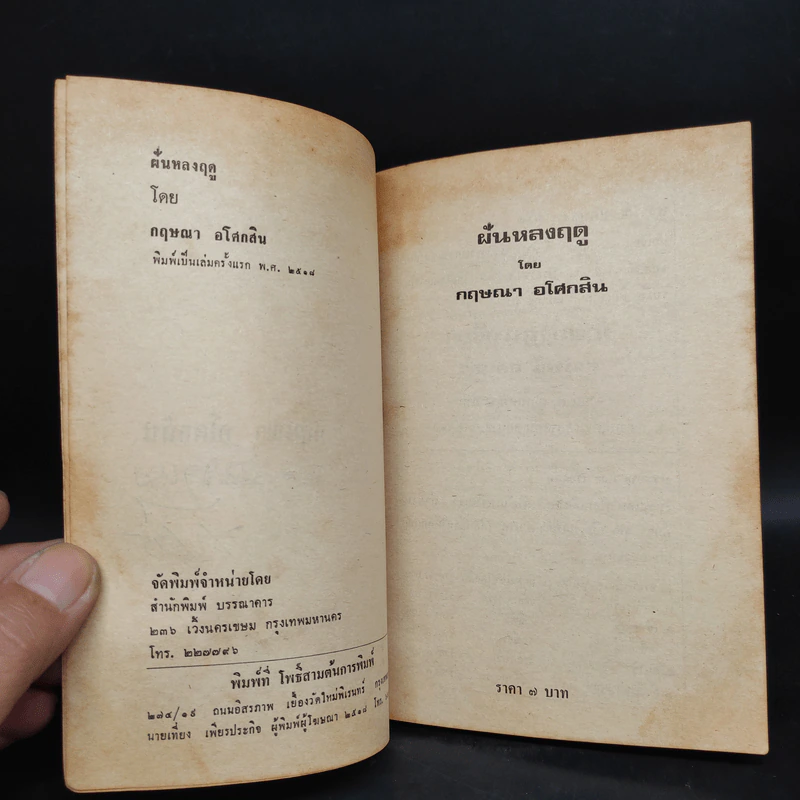 ฝันหลงฤดู
โดย
กฤษณา อโศกสิน
พิมพ์เป็นเล่มครั้งแรก พ.ศ. ๒๕๑๘
จัดพิมพ์จำหน่ายโดย
สำนักพิมพ์ บรรณาคาร
๒๓๖ เวิ้งนครเขษม กรุงเทพมหานคร
โทร. ๒๒๗๗๙๖
พิมพ์ที่ โพธิ์สามต้นการพิมพ์
๒๗๔/๑๙ ถนนอิสรภาพ เยื้องวัดใหม่พิเรนทร์
นายเที่ยง เพียรประกิจ ผู้พิมพ์ผู้โฆษณา ๒๕๑๘ โทร.
ฝันหลงฤดู
โดย
กฤษณา อโศกสิน
ราคา ๗ บาท